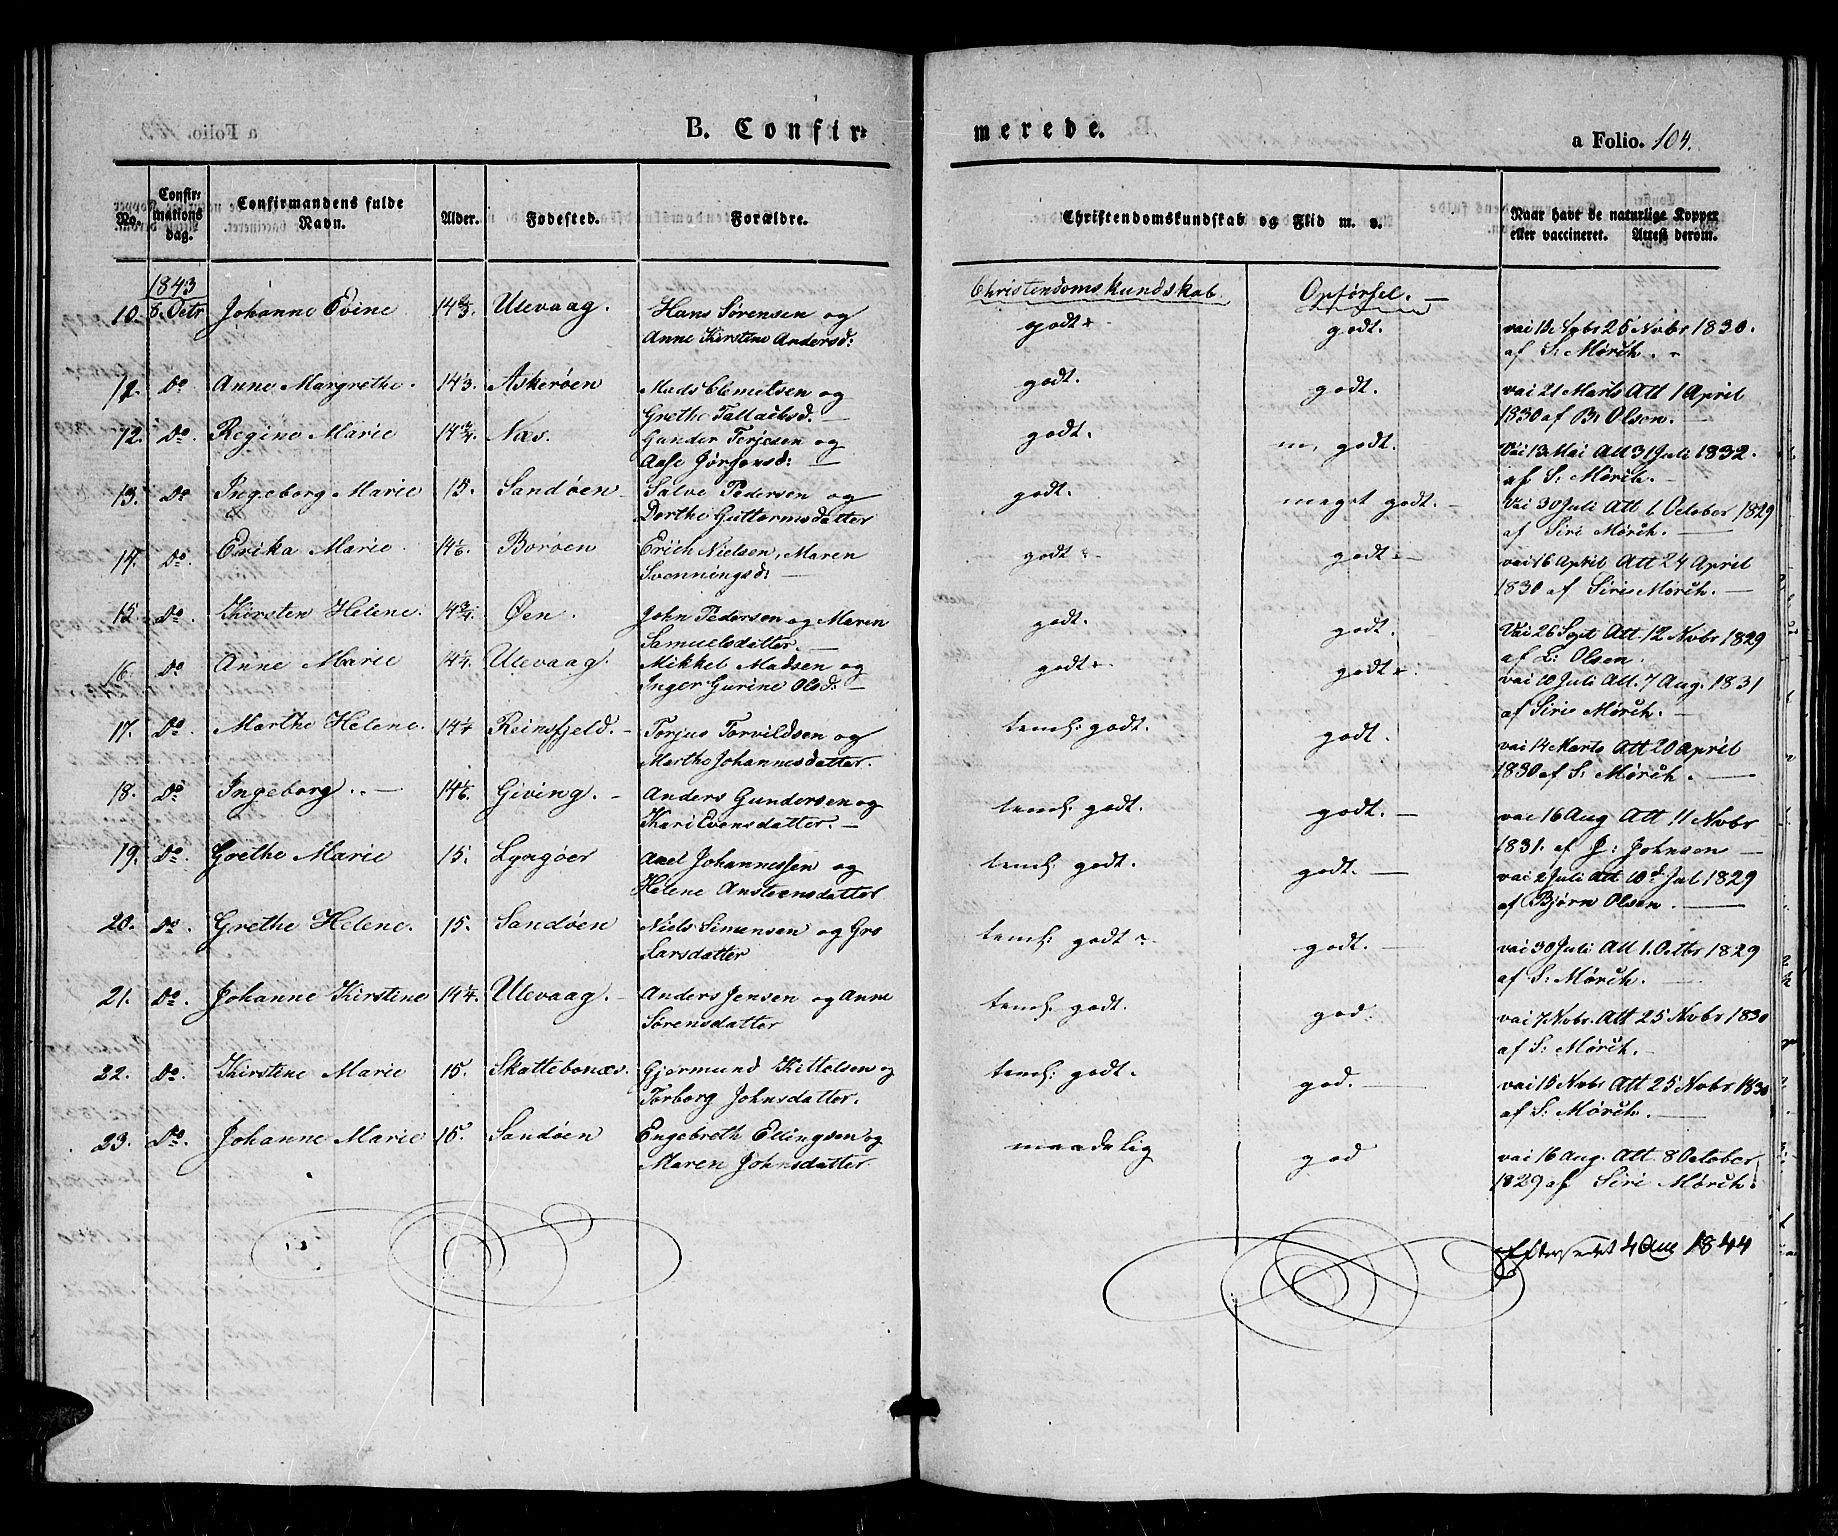 B. Confir=
merede.
a Folio. 104.
No.
Confir=
mations
dag.
Confirmandens fulde
Navn.
Alder.
Fødested.
Forældre.
Christendomskundskab og Flid m. v.
Naar havt de naturlige Kopper
eller vaccineret. Attest derom.
1843
Christendomskundskab. Opførsel. —
10. 8. Octr Johanne 14 2/3. Ulevaag. Hans Sørensen og godt godt. 25 Novbr 1830.
Anne Kirstine Andersd: af S: Mørch.
Do Anne Margrethe. 14 1/3. Askerøen Mads Clemetsen og godt. godt. vac 21 Marts Att 1 April
Grethe 1830 af B: Olsen. —
12. Do. Regine Marie 14 3/4. Næs. Gunder Terjesen og godt. m, godt. Vac 13 Mai Att 31 Juli 1832.
Aase Jørgensd: — af S: Mørch. —
13. Do Ingeborg Marie 15. Sandøen Salve Pedersen og godt. meget godt. — Vac 30 Juli Att 1. October 1829
Dorthe Guttormsdatter af Siri Mørch. —
14. Do. Erika Marie. 14 1/6. Borøen Erich Nielsen, Maren godt godt — vac 16 April Att 24 April
Svenningsd: — 1830 af Siri Mørch. —
15. Do. Kirsten Helene. 14 3/4. Øen. John Pedersen og Maren godt. godt. Vac 26 Sept Att 12 Novbr 1829
Samuelsdatter. — af B: Olsen.
16. Do Anne Marie 14 1/4. Ulevaag. Mikkel Madsen og godt godt vac 10 Juli Att. 7 Aug. 1831
Inger Gurine Olsd: — af Siri Mørch. —
17. Do. Marthe Helene. 14 1/4 Reinsfjeld. — Torjus Torvildsen og teml: godt. godt. vac 14 Marts Att 20 April
Marthe Johannesdatter. 1830 af S: Mørch. —
18. Do Ingeborg. — 14 1/6. Giving. — Anders Gundersen og teml: godt. godt. — vac 16 Aug Att 11 Novbr
Kari Evensdatter. — 1831. af J: Johnsen —
19. Do. Grethe Marie 15. Lyngøer Axel Johannessen og teml: godt. godt. — vac 2 Juli Att 10d Jul 1829
Helene Ansteensdatter af Bjørn Olsen. —
20. Do. Grethe Helene. 15. Sandøen Niels Simensen og Gro teml: godt godt. — vac 30 Juli Att 1. Octbr 1829
Larsdatter af S: Mørch. —
21. Do. Johanne Kirstine 14 1/4. Ulevaag. — Anders Jensen og Anne teml. godt. god. vac 7 Novbr. Att 25 Novbr 1830
Sørensdatter af S: Mørch. —
22. Do. Kirstine Marie 15. Skattebonæs. Gjermund Kittelsen og teml: godt. god. — vac 15 Novbr Att 25 Novbr 1830
Torborg Johnsdatter. af S: Mørch. —
23. Do. Johanne Marie 15. Sandøen Engebreth Ellingsen og maadelig god vac 16 Aug. Att 8 October
Maren Johnsdatter. 1829 af Siri Mørch.
Efterseet 4 Aug 1844